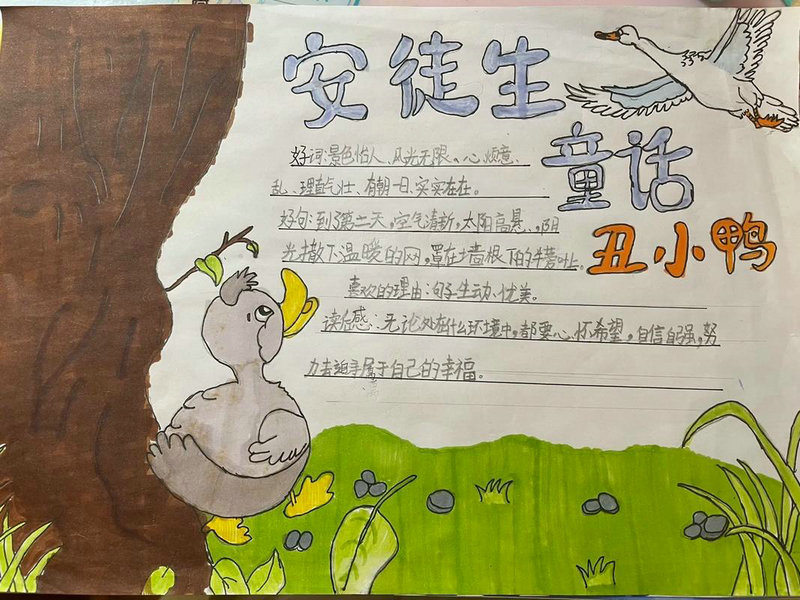 安徒生
童话
丑小鸭
好词:景色怡人、风光无限。心烦意
乱、理直气壮、有朝一日、实实在在。
好句:到了第二天,空气清新,太阳高悬,阳
光撒下温暖的网,罩在墙根下的牛蒡叶上。
喜欢的理由:句子生动、优美。
读后感:无论处在什么环境中,都要心怀希望,自信自强,努
力去追寻属于自己的幸福。